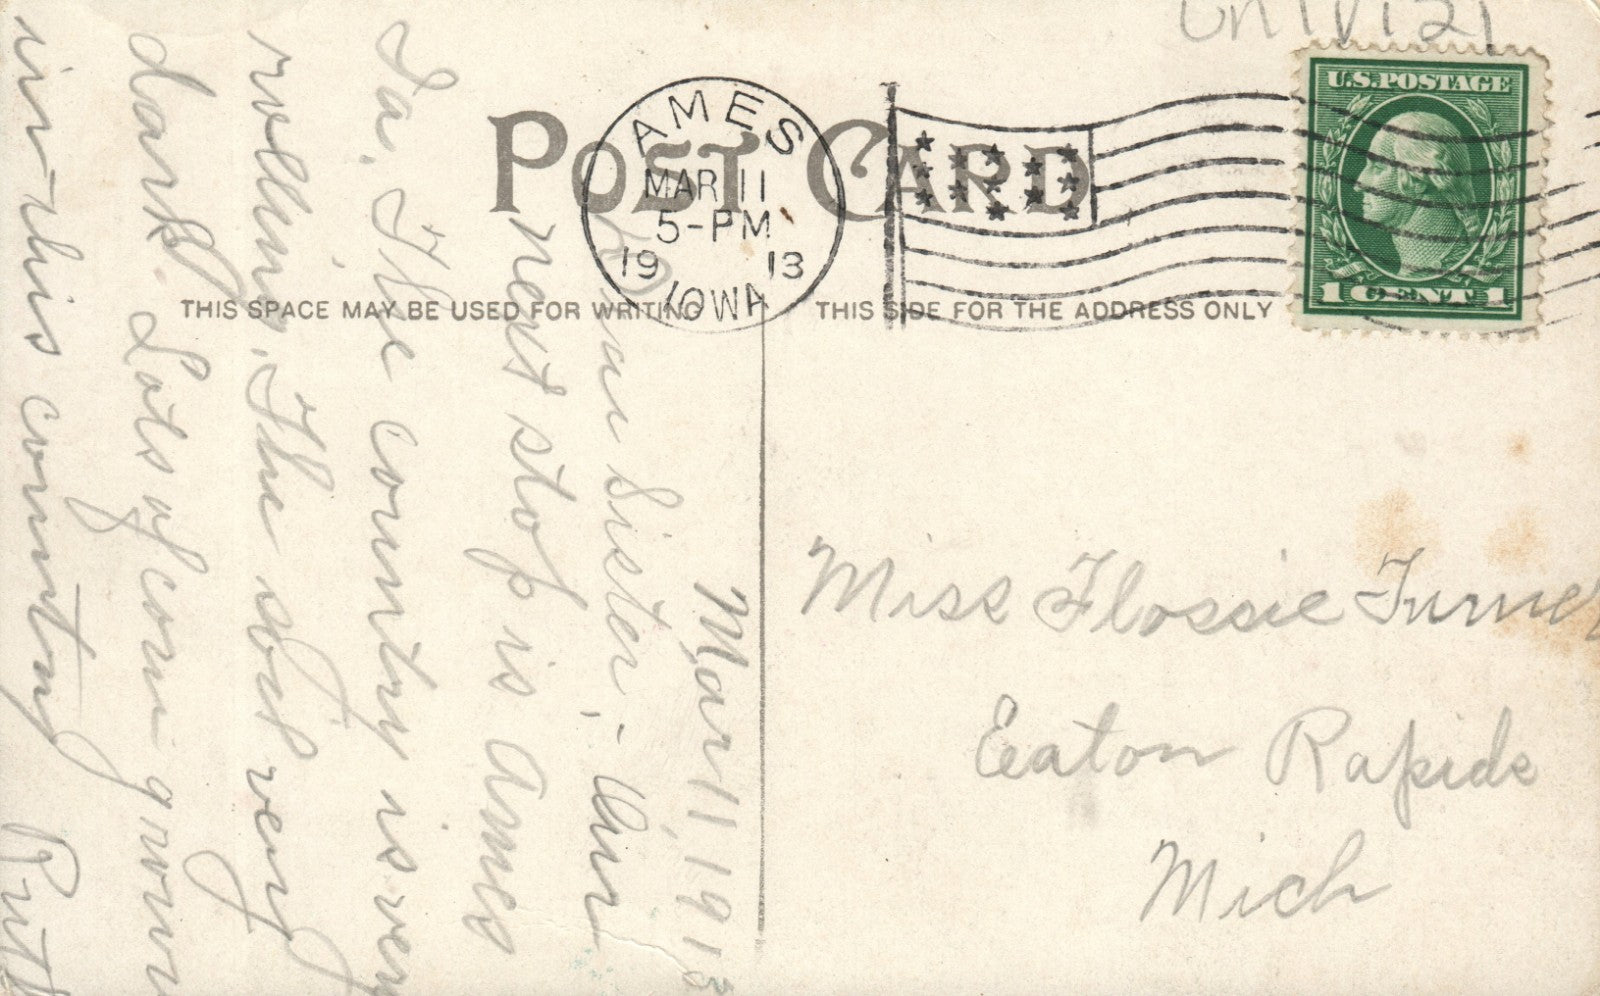 U.S. POSTAGE
1 CENT 1
AMES
MAR 11
5-PM
19 13
IOWA
POST CARD
THIS SPACE MAY BE USED FOR WRITING
THIS SIDE FOR THE ADDRESS ONLY
Mar 11, 1913
Dear Sister,- Our
next stop is Ames
Ia. The country is very
rolling. The soil very
dark. Lots of corn grown
in this country
Ruth
Miss Flossie Turner
Eaton Rapids
Mich